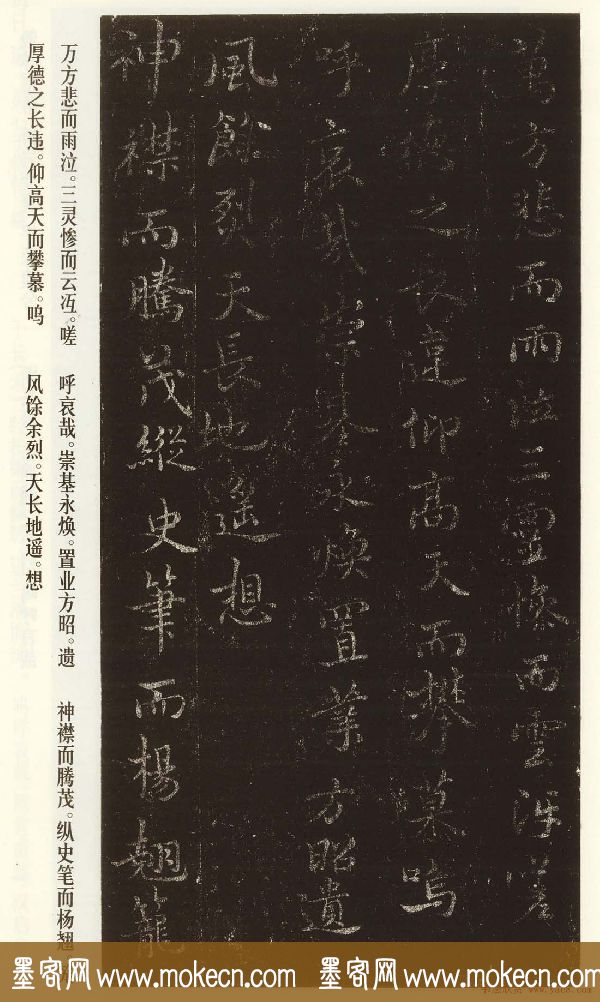 萬方悲而雨泣三靈惨而雲沍嗟
厚德之長違仰高天而攀慕嗚
呼哀哉崇基永煥置業方昭遺
風餘烈天長地遙想
神襟而騰茂縱史筆而楊翹籠
万方悲而雨泣。三灵惨而云冱。嗟
厚德之长违。仰高天而攀慕。呜
呼哀哉。崇基永焕。置业方昭。遗
风馀余烈。天长地遥。想
神襟而腾茂。纵史笔而杨翘
墨客网 www.mokecn.com 墨客网 www.mokecn.com